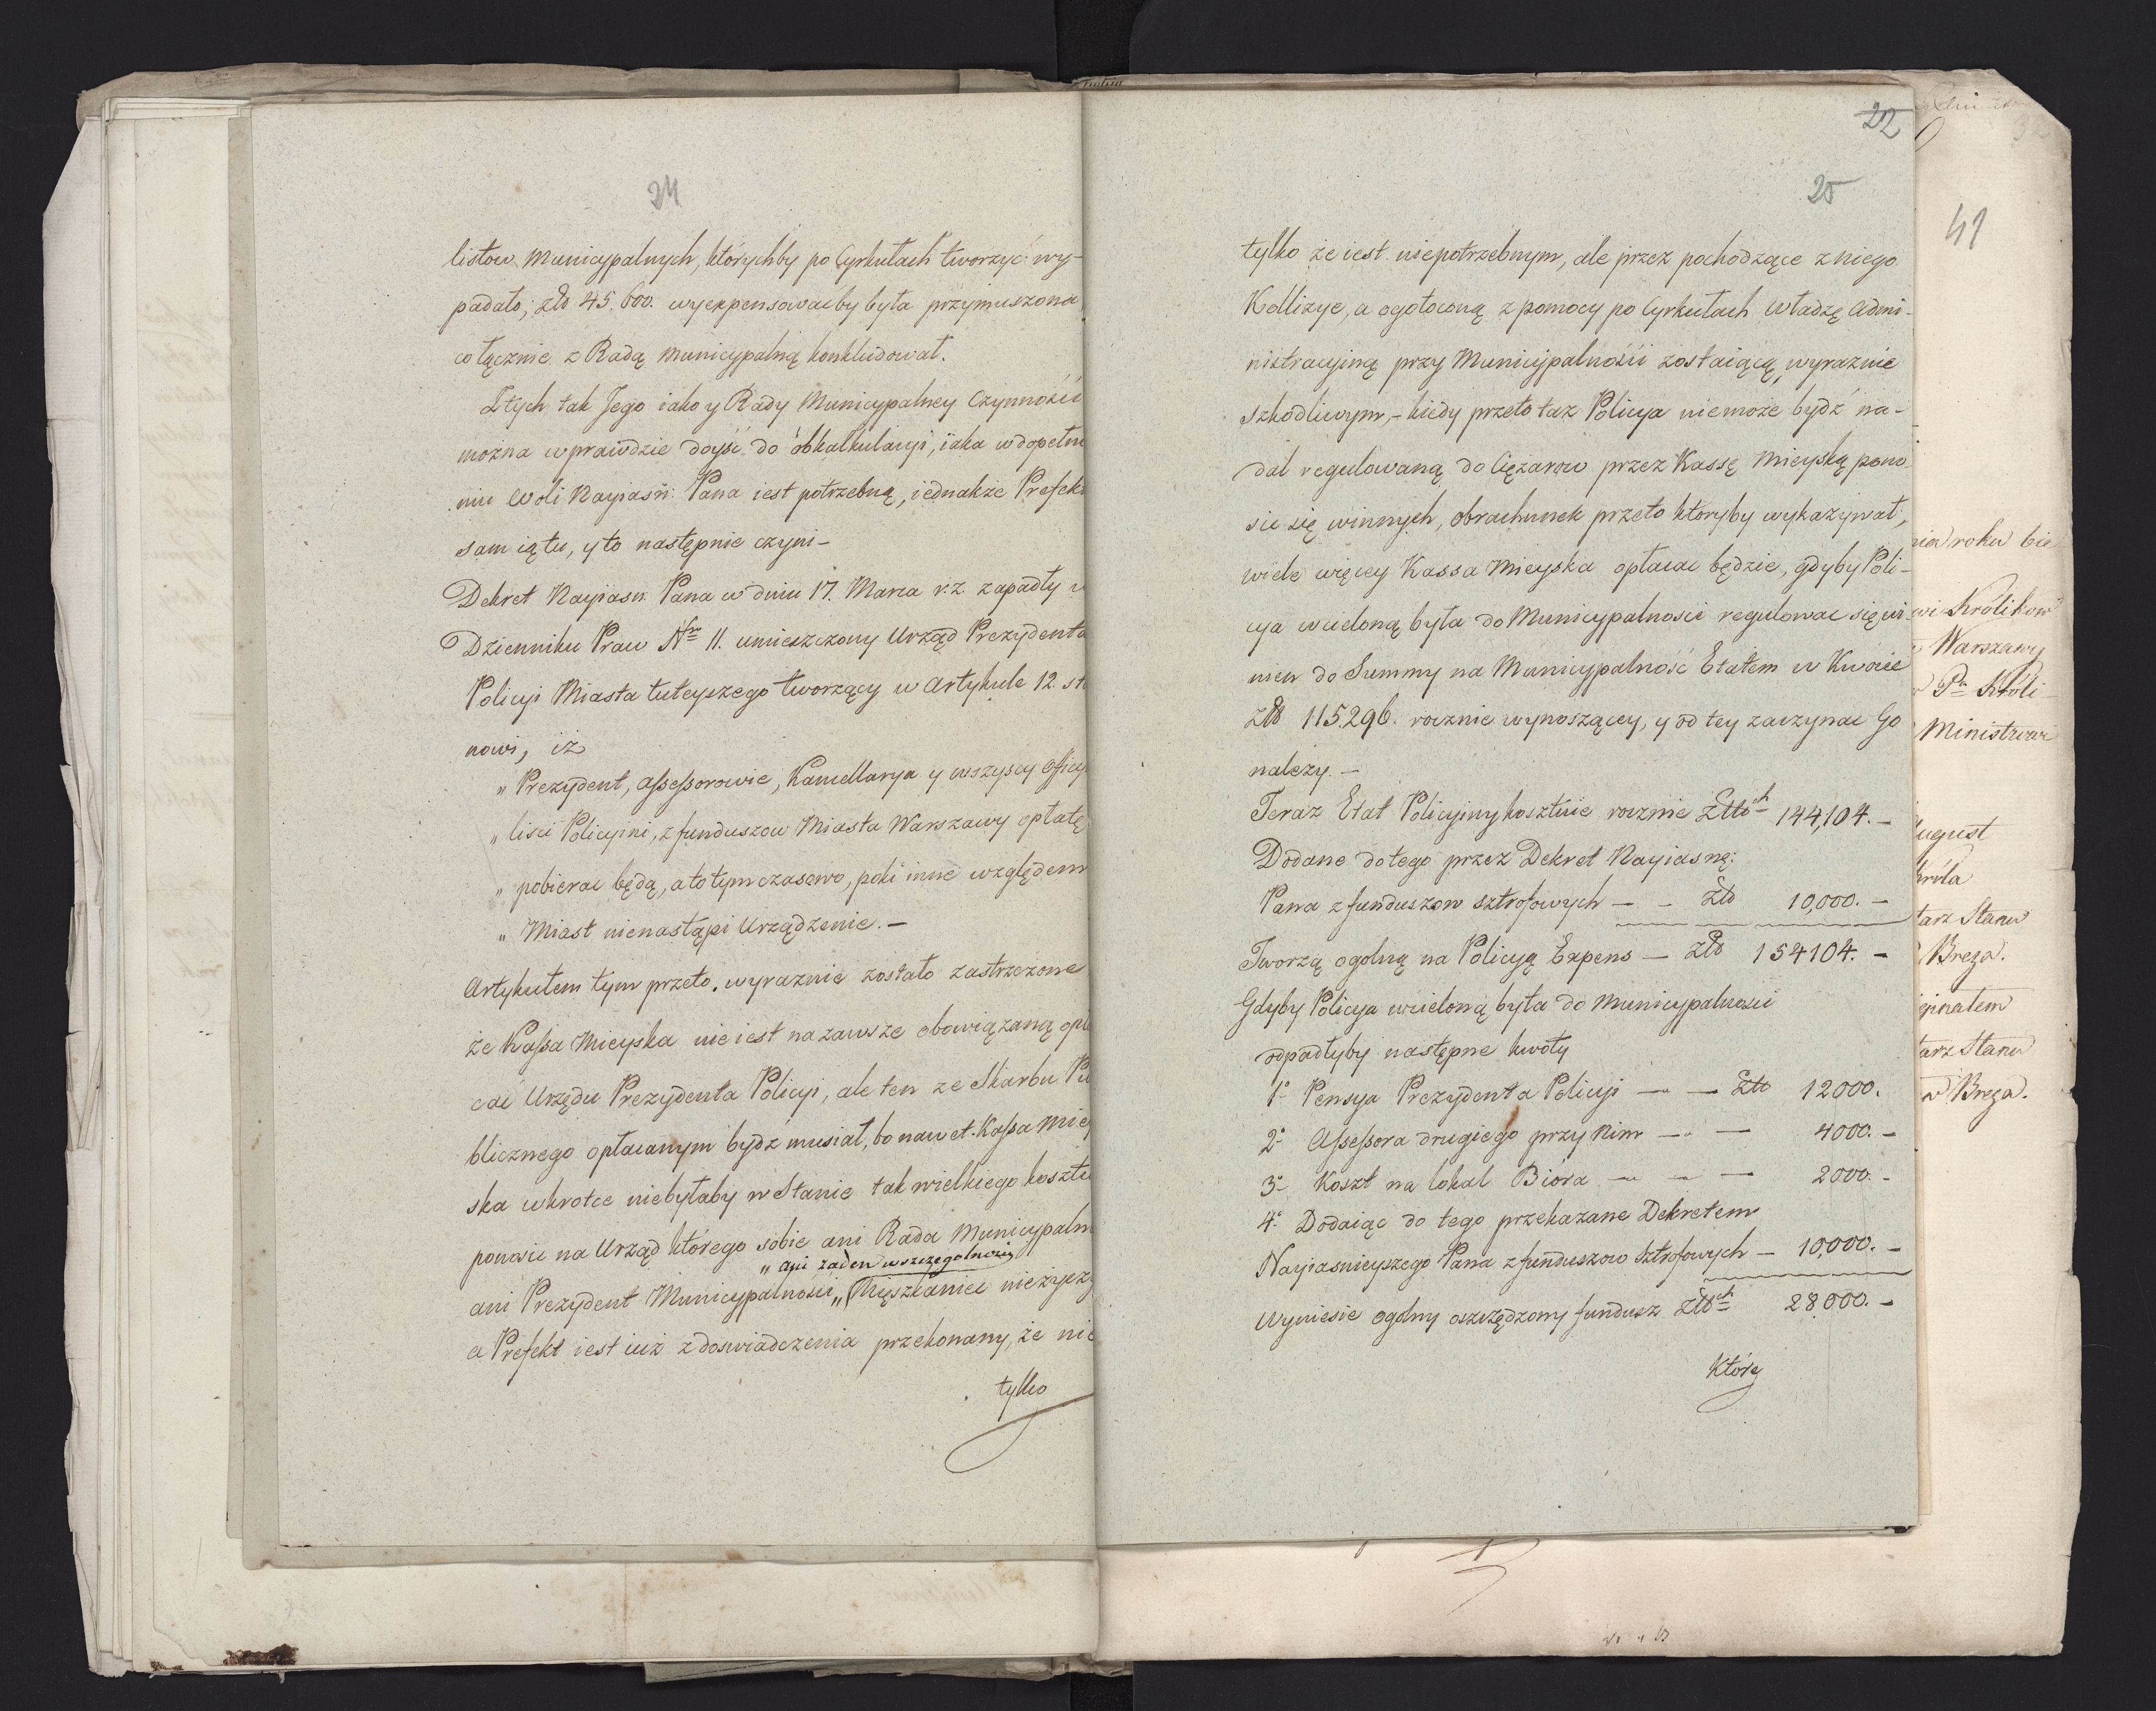 24
listow Municypalnych, którychby po Cyrkułach tworzyć wy-
padało, Złł 45.600. wyexpensowaćby była przymuszona
co łącznie z Radą Municypalną konkludował.
Z tych tak Jego iako y Rady Municypalney Czynności
można wprawdzie doyść do obkalkulacyi, iaka w dopełnie
niu Woli Nayiaśń: Pana iest potrzebną, iednakże Prefekt
sam ią tu, y to następnie czyni-
Dekret Nayiasń. Pana w dniu 17. Marca r.z. zapadły w
Dzienniku Praw Nro 11. umieszczony Urząd Prezydenta
Policyi Miasta tuteyszego tworzący w Artykule 12. sta
nowi, iż
„ Prezydent, Assessorowie, Kancellarya y wszyscy Oficy
„ liści Policyini, z funduszow Miasta Warszawy opłatę
„ pobierac będą, a to tymczasowo, poki inne względem
„ Miast nienastąpi Urządzenie. -
Artykułem tym przeto, wyraznie zostało zastrzeżone
że Kassa Mieyska nie iest na zawsze obowiązaną opła
cać Urzędu Prezydenta Policyi, ale ten ze Skarbu Pu
blicznego opłacanym bydź musiał, bo nawet Kassa Miey
ska wkrotce niebyłaby w Stanie tak wielkiego kosztu
ponosic na Urząd którego sobie ani Rada Municypalna
„ ani żaden w szczegolności
ani Prezydent Municypalności „ Mieszkaniec nieżyczy
a Prefekt iest iuż z doswiadczenia przekonany, że nie
tylko
22
25
tylko że iest niepotrzebnym, ale przez pochodzące z niego
Kollizye, a ogołoconą z pomocy po Cyrkułach Władzę Admi-
nistracyiną przy Municypalności zostaiącą, wyraznie
szkodliwym, - kiedy przeto taż Policya niemoże bydź na-
dal regulowaną do Ciężarow przez Kassę Mieyską pono
sić się winnych, obrachunek przeto któryby wykazywał,
wiele więcey Kassa Mieyska opłacac będzie, gdyby Poli-
cya wcieloną była do Municypalności regulowac się wi-
nien do Summy na Municypalność Etatem w Kwocie
Złł 115296. rocznie wynoszącey, y od tey zaczynac Go
należy. -
Teraz Etat Policyiny kosztuie rocznie Złłch 144,104. -
Dodane do tego przez Dekret Nayiasnę:
Pana z funduszow sztrofowych - - Złł 10,000. -
Tworzą ogolną na Policyą Expens - Złł 154104. -
Gdyby Policya wcieloną była do Municypalności
odpadłyby następne kwoty
1o Pensya Prezydenta Policyi - - Złł 12000.
2o Assessora drugiego przy Nim - - 4000. -
3o Koszt na lokal Biora - - - 2000. -
4o Dodaiąc do tego przekazane Dekretem
Nayiasnieyszego Pana z funduszow Sztrofowych - 10,000. -
Wyniesie ogolny oszczędzony fundusz Złłch 28,000. -
Które
41
roku bie
Królikow
Warszawy
Pa Króli
Ministrow
ugust
króla
tarz Stanu
Breza.
ginałem
tarz Stanu
Breza.